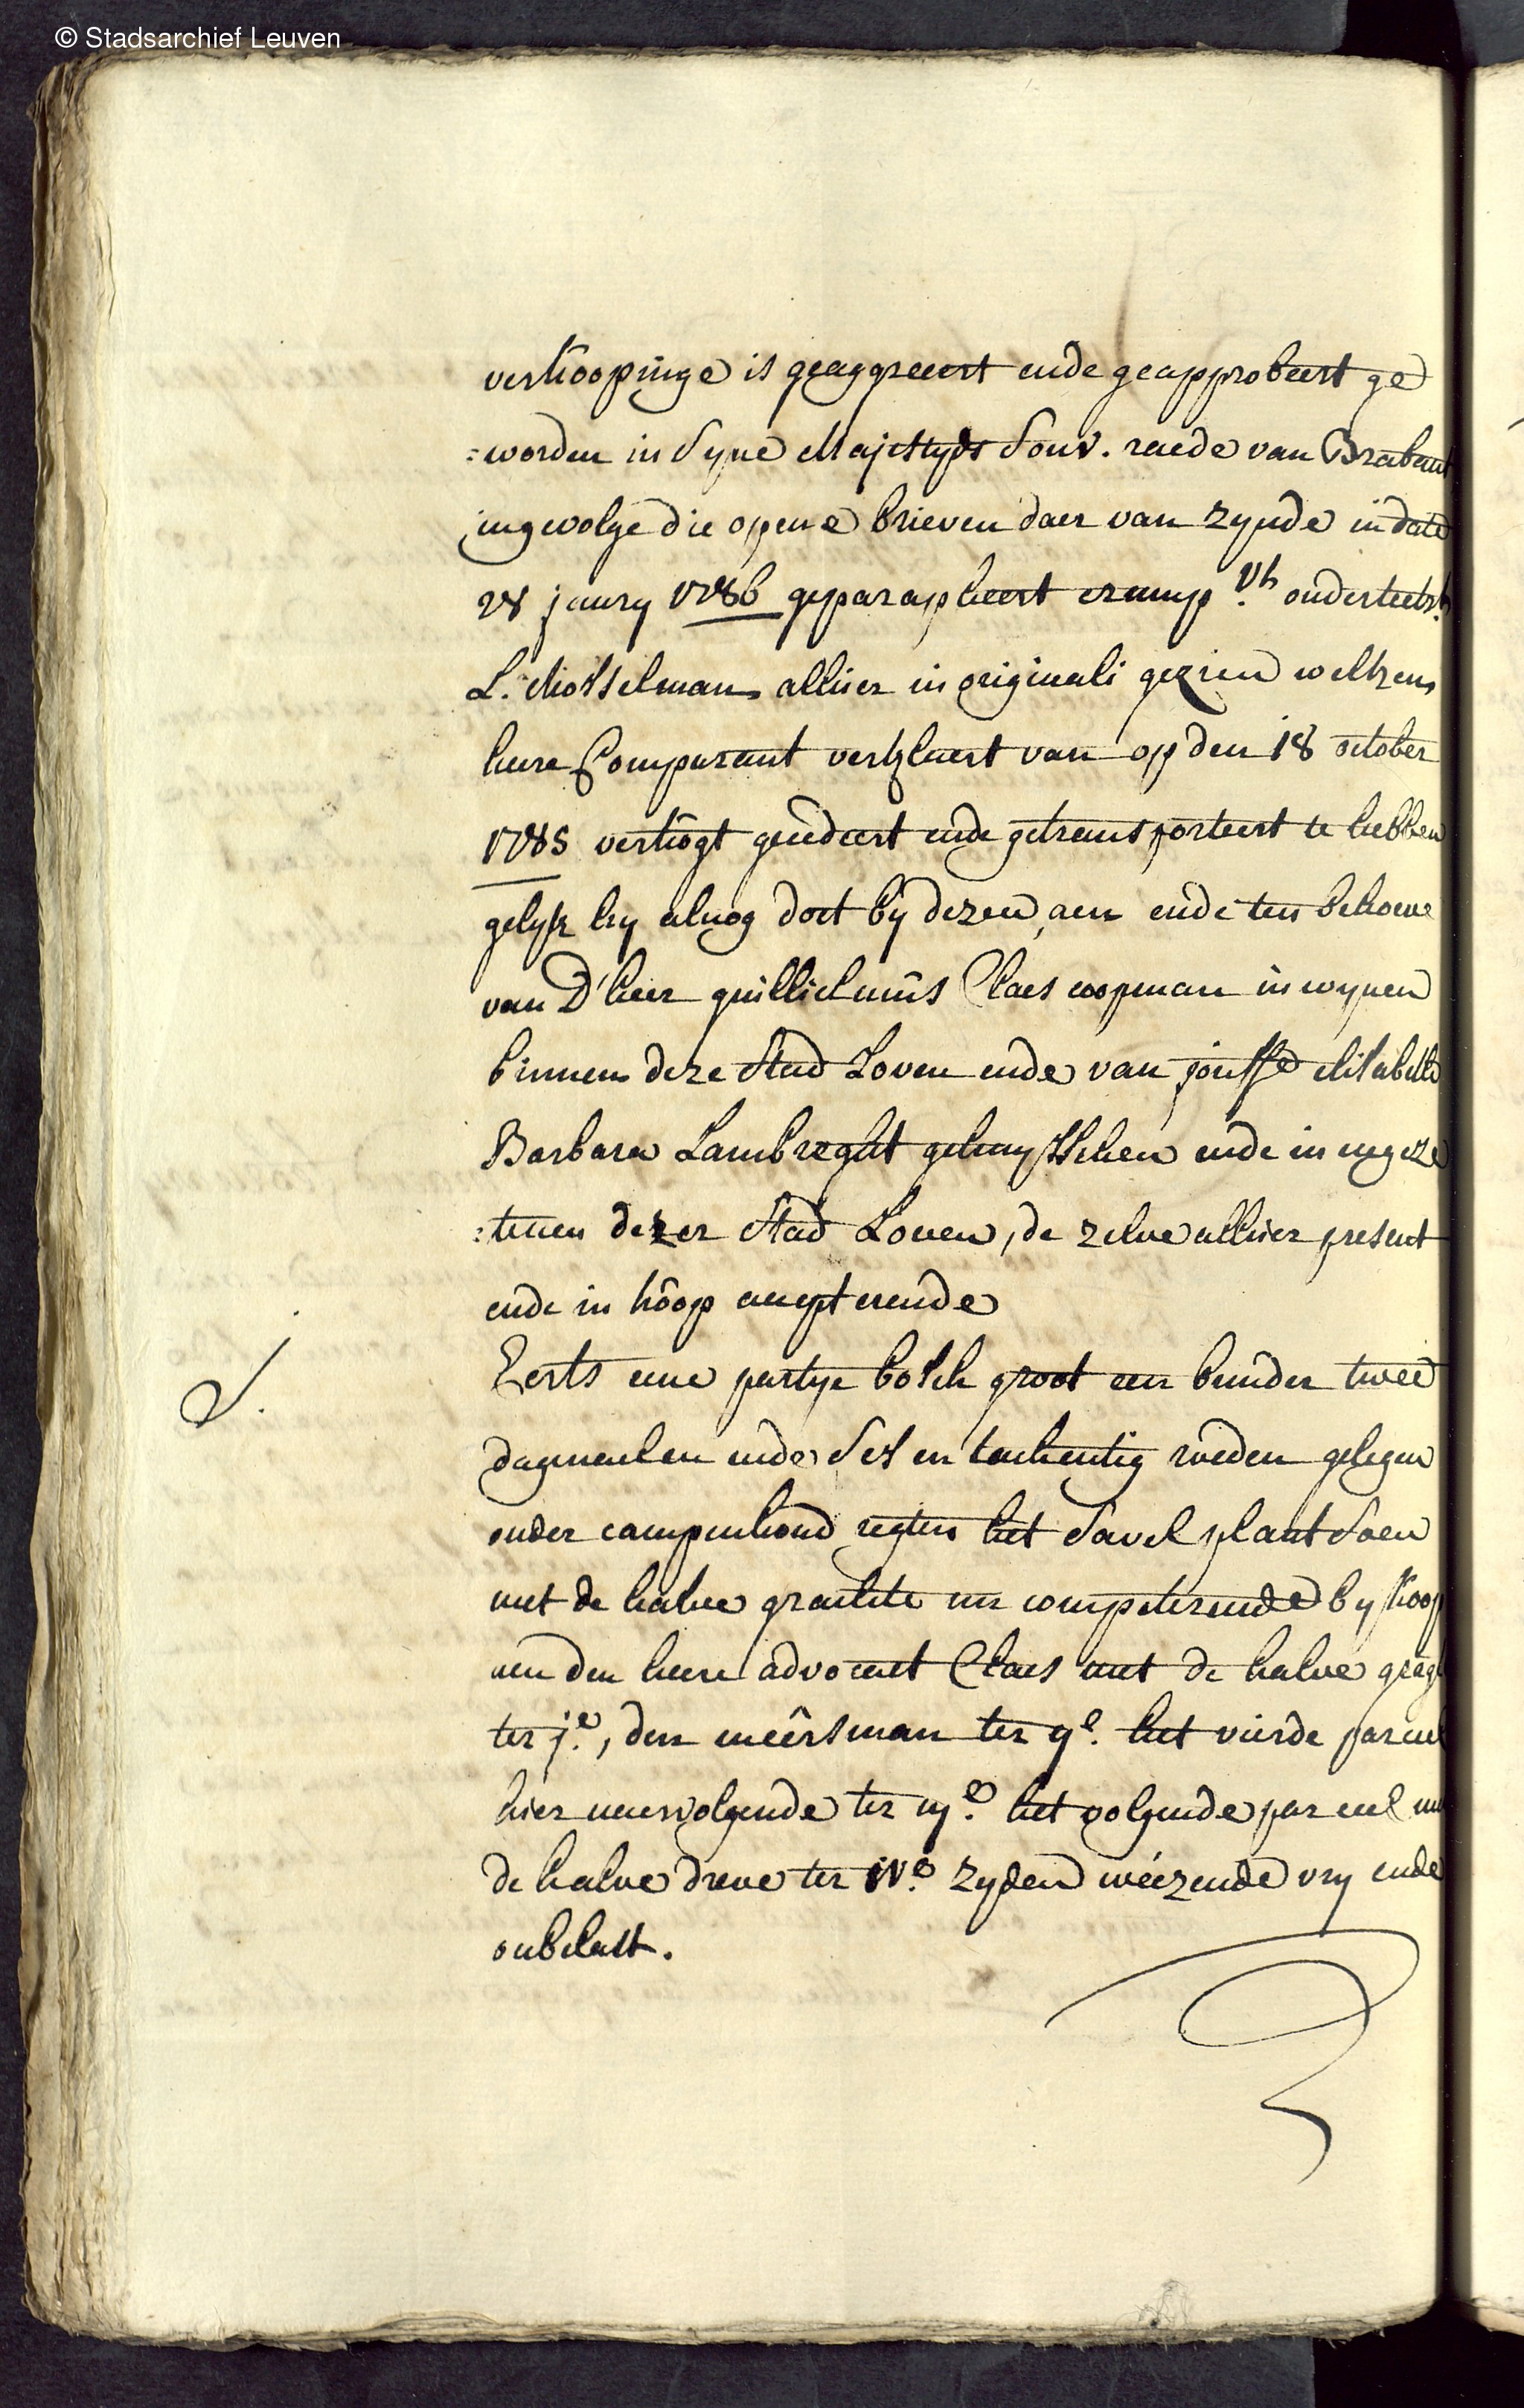 © Stadsarchief Leuven
verkoopinge is geaggreert ende geapprobeert ge
=worden in Syne Majestyts Souv. raede van Brabant
ingevolge die opene brieven daer van zynde in date
28 janry 1786 geparapheert cramp. vt onderteekt.
L. Mosselman alhier in originali gezien welken
heere Comparant verklaert van op den 18 october
1785 verkogt gecedeert ende getransporteert te hebben
gelyk hy alnog doet by dezen, aen ende ten behoeve
van D'heer guillielmus Claes coopman in wynen
binnen deze Stad Loven ende van jouffe elisabetta
Barbara Lambreght gehuysschen ende in ingeze
=tenen dezer Stad Loven, de zelve alhier present
ende in koop accepterende
Eerts eene partye bosch groot een bunder twee
dagmaelen ende Ses en tachentig roeden gelegen
onder campenhoud regten het Savel plantsoen
met de halve grachte nu competerende by koop
aen den heere advocaet Claes met de halve gragt
ter je., den meêrsman ter ije. het vierde parceel
hier naervolgende ter iije. het volgende parceel met
de halve dreve ter IVe. zyden weézende vry ende
onbelast.